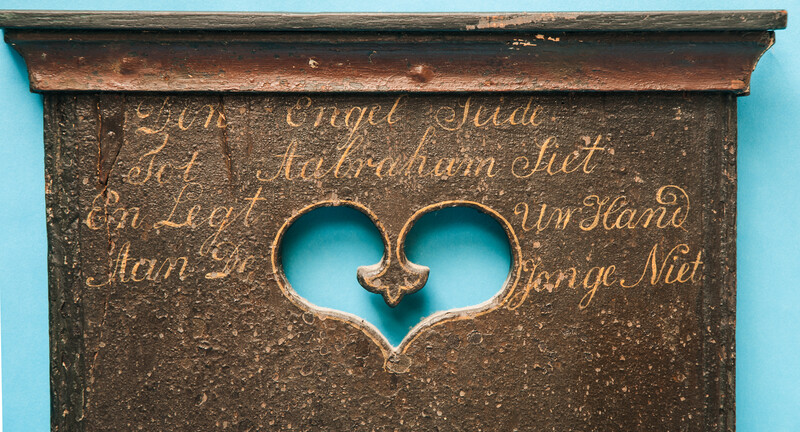 Den Engel Side
Tot Aabraham Siet
En Legt Uw Hand
Aan De Jonge Niet